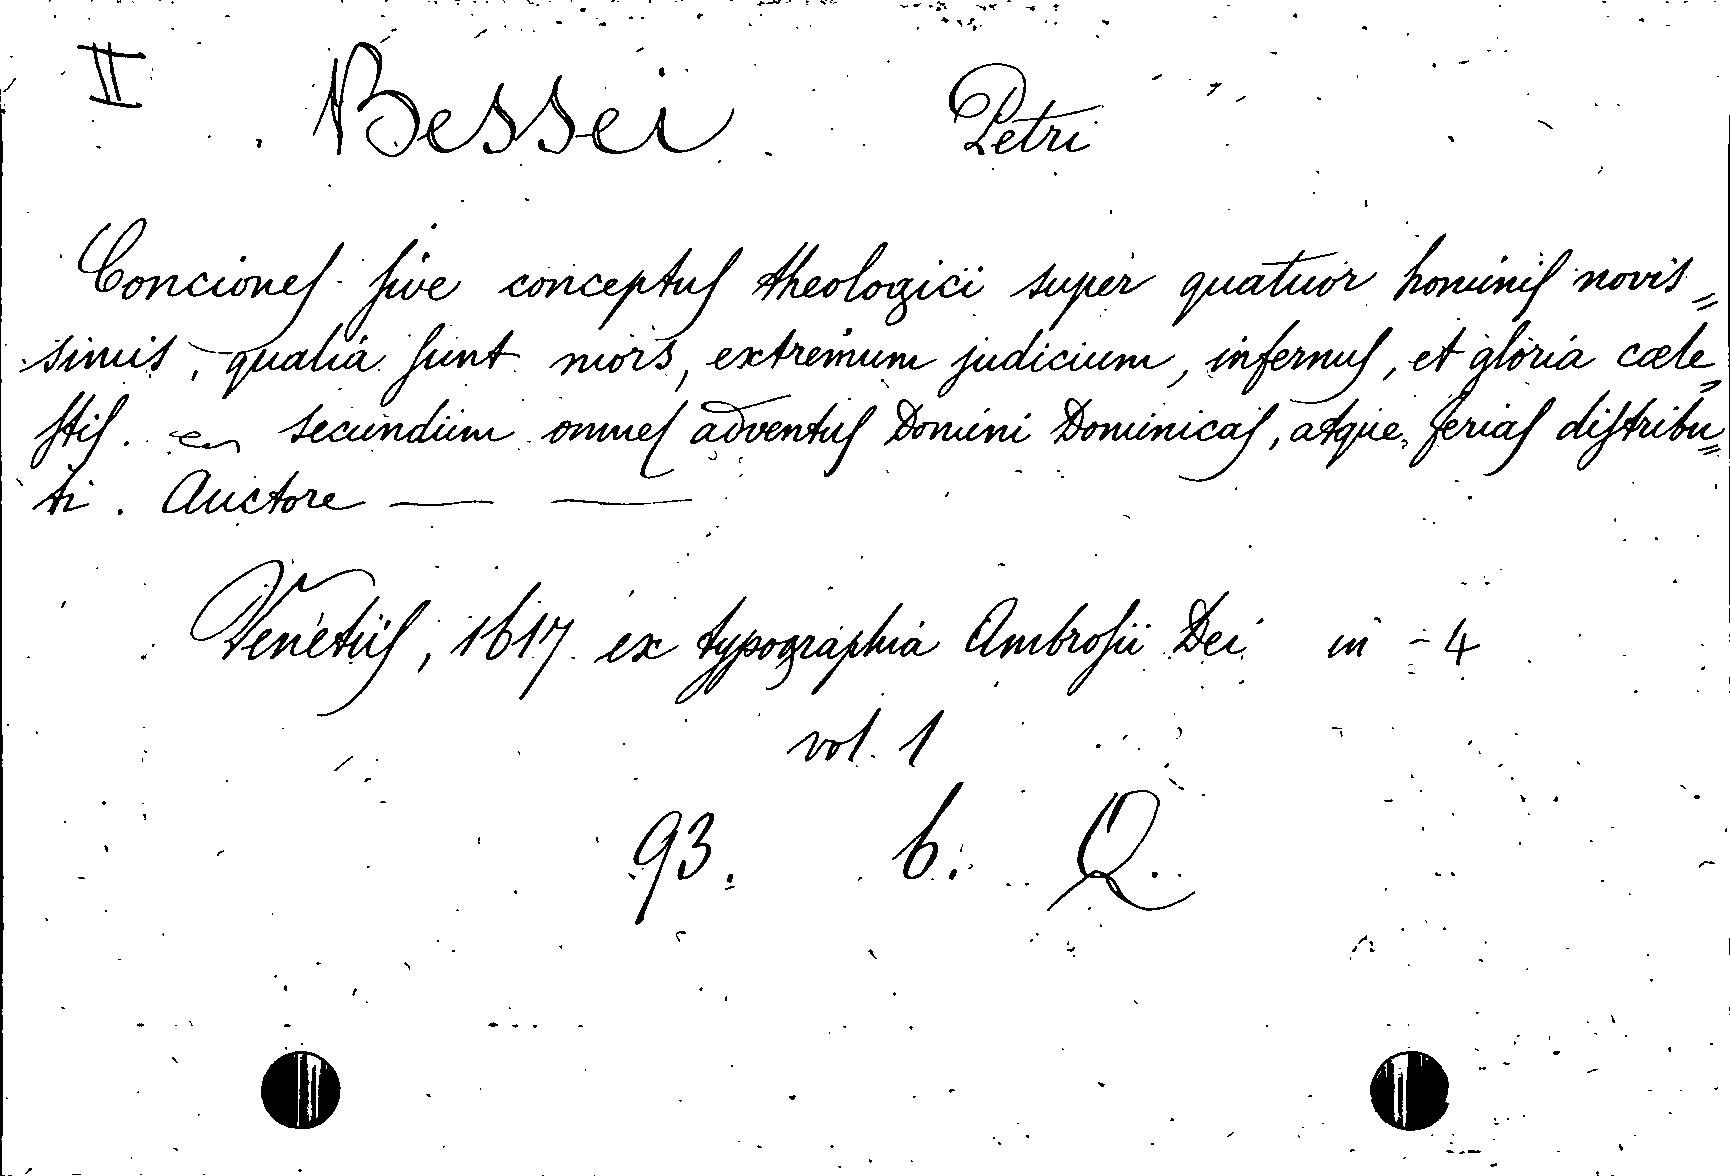 II Bessei Petri
Concioneſ ſive conceptuſ theologici super quatuor hominiſ novis„
simis, qualia ſunt mors, extremum judicium, infernuſ, et gloria cæle„
ſtiſ. secundum omneſ adventuſ Domini Dominicaſ, atque feriaſ diſtribu„
ti. Auctore — —
Venetiiſ, 1617 ex typographia Ambroſii Dei in - 4
vol. 1
93. b. Q.